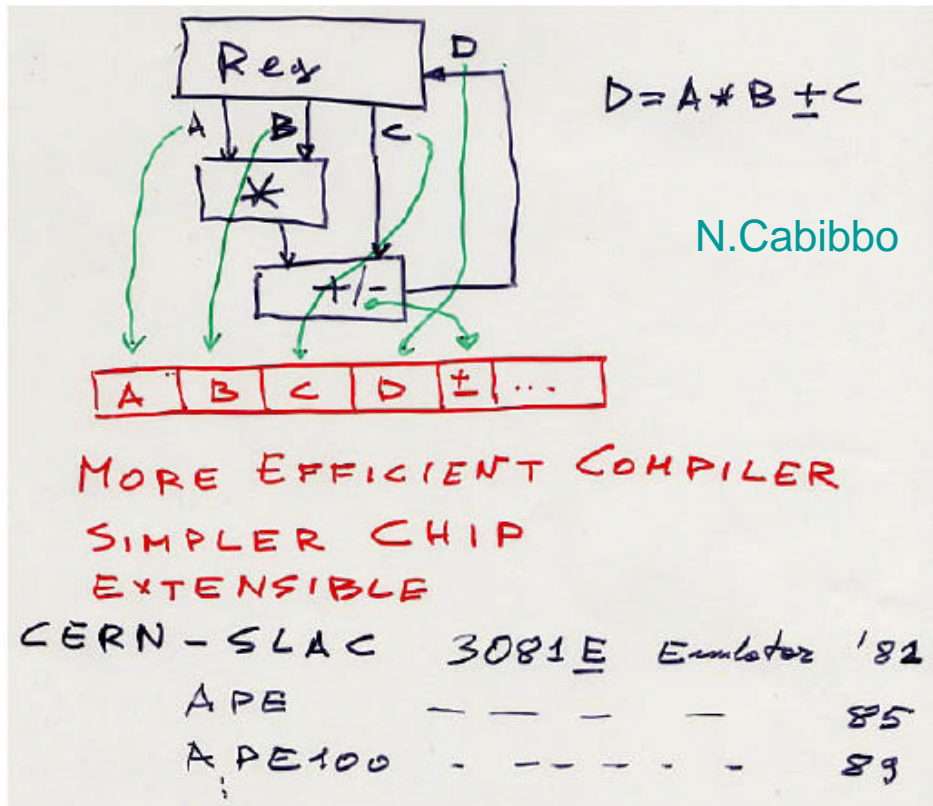 Reg
D
D = A * B ± C
A B C
*
N.Cabibbo
+/-
A B C D ± ...
MORE EFFICIENT COMPILER
SIMPLER CHIP
EXTENSIBLE
CERN - SLAC 3081E Emulator '82
APE — — — — 85
APE100 - - - - - - 89